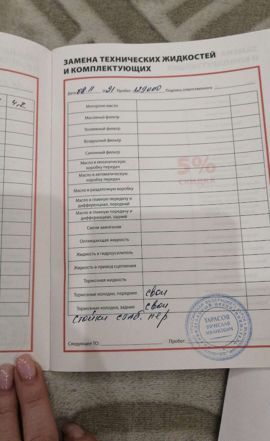 4,2
ЗАМЕНА ТЕХНИЧЕСКИХ ЖИДКОСТЕЙ
И КОМПЛЕКТУЮЩИХ
Дата 08.11 21 Пробег 129000 Подпись ответственного
Моторное масло
Масляный фильтр
Топливный фильтр
Воздушный фильтр
Салонный фильтр
Масло в механическую
коробку передач
Масло в автоматическую
коробку передач
Масло в раздаточную коробку
Масло в главную передачу и
дифференциал, передний
Масло в главную передачу и
дифференциал, задний
Свечи зажигания
Охлаждающая жидкость
Жидкость в гидроусилитель
Жидкость в привод сцепления
Тормозная жидкость
Тормозные колодки, передние свои
Тормозные колодки, задние свои
стойки стаб. пер
5%
СКИДКА
ТАРАСОВ
Следующее ТО: Пробег